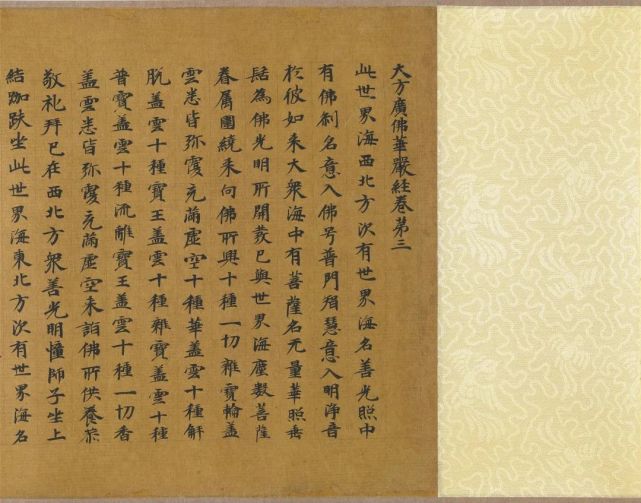 大方廣佛華嚴経卷第三
此世界海西北方次有世界海名善光照中
有佛刹名意入佛号普門智慧意入明淨音
於彼如来大衆海中有菩薩名无量華照垂
髻為佛光明所開發已與世界海塵數菩薩
眷属圍繞来向佛所興十種一切雜寶輪盖
雲悉皆弥覆充滿虛空十種華盖雲十種解
脫盖雲十種寶王盖雲十種雜寶盖雲十種
普寶盖雲十種流離寶王盖雲十種一切香
盖雲悉皆弥覆充滿虛空来詣佛所供養恭
敬礼拜已在西北方衆善光明憧師子坐上
結跏趺坐此世界海東北方次有世界海名